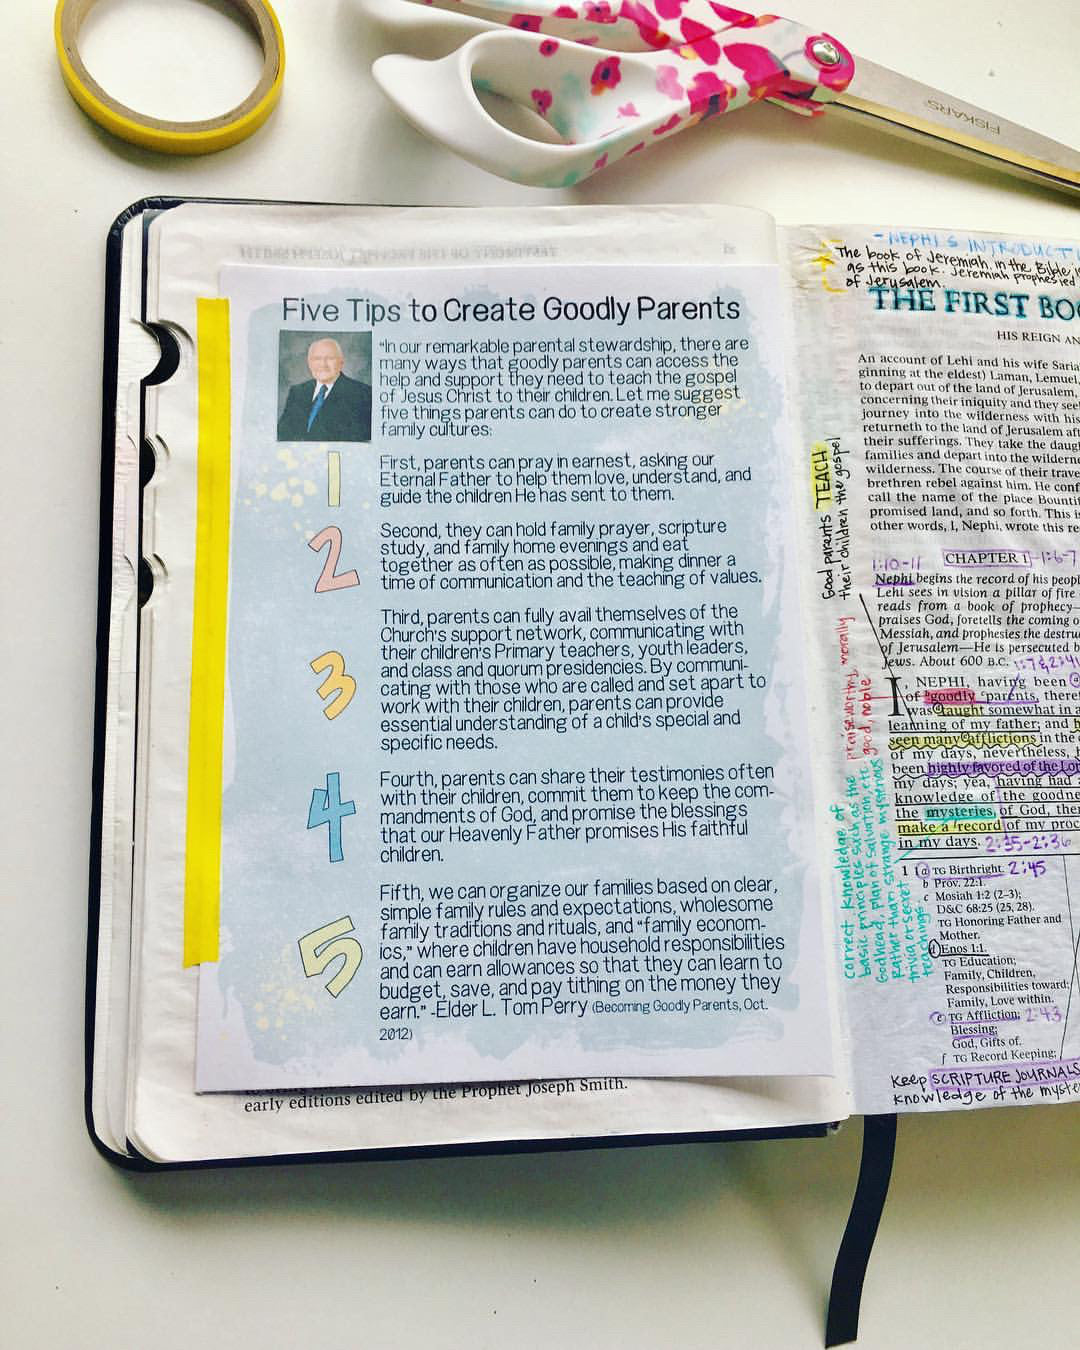 FISKARS
Five Tips to Create Goodly Parents
"In our remarkable parental stewardship, there are
many ways that goodly parents can access the
help and support they need to teach the gospel
of Jesus Christ to their children. Let me suggest
five things parents can do to create stronger
family cultures:
1
First, parents can pray in earnest, asking our
Eternal Father to help them love, understand, and
guide the children He has sent to them.
2
Second, they can hold family prayer, scripture
study, and family home evenings and eat
together as often as possible, making dinner a
time of communication and the teaching of values.
3
Third, parents can fully avail themselves of the
Church's support network, communicating with
their children's Primary teachers, youth leaders,
and class and quorum presidencies. By communi-
cating with those who are called and set apart to
work with their children, parents can provide
essential understanding of a child's special and
specific needs.
4
Fourth, parents can share their testimonies often
with their children, commit them to keep the com-
mandments of God, and promise the blessings
that our Heavenly Father promises His faithful
children.
5
Fifth, we can organize our families based on clear,
simple family rules and expectations, wholesome
family traditions and rituals, and "family econom-
ics," where children have household responsibilities
and can earn allowances so that they can learn to
budget, save, and pay tithing on the money they
earn." -Elder L. Tom Perry (Becoming Goodly Parents, Oct.
2012)
early editions edited by the Prophet Joseph Smith.
-NEPHI'S INTRODUCT
The book of Jeremiah in the Bible
as this book. Jeremiah prophesied
of Jerusalem.
THE FIRST BO
HIS REIGN AN
An account of Lehi and his wife Saria
ginning at the eldest) Laman, Lemuel,
to depart out of the land of Jerusalem,
concerning their iniquity and they see
journey into the wilderness with his
returneth to the land of Jerusalem aft
their sufferings. They take the daug
families and depart into the wildern
wilderness. The course of their trave
brethren rebel against him. He conf
call the name of the place Bountif
promised land, and so forth. This i
other words, I, Nephi, wrote this re
Good parents TEACH
their children the gospel
1:10-11 CHAPTER 1 -1:6-7
Nephi begins the record of his peopl
Lehi sees in vision a pillar of fire
reads from a book of prophecy—
praises God, foretells the coming o
Messiah, and prophesies the destru
of Jerusalem—He is persecuted b
Jews. About 600 B.C. 1:7 &
praiseworthy, morally
good, noble
I, NEPHI, having been
of b goodly c parents, theref
was d taught somewhat in a
learning of my father; and h
seen many e afflictions in the c
of my days, nevertheless, h
been highly favored of the Lor
my days; yea, having had a
knowledge of the goodne
the mysteries of God, ther
make a f record of my proc
in my days. 2:35-2:36
correct knowledge of
basic principles such as the
Godhead, plan of salvation, etc.
Rather than strange mysterious
trivia or secret
teachings.
1 1 a TG Birthright. 2:45
b Prov. 22:1.
c Mosiah 1:2 (2–3);
D&C 68:25 (25, 28).
TG Honoring Father and
Mother.
d Enos 1:1.
TG Education;
Family, Children,
Responsibilities toward;
Family, Love within.
e TG Affliction; 2:43
Blessing;
God, Gifts of.
f TG Record Keeping;
Keep SCRIPTURE JOURNALS
knowledge of the myste